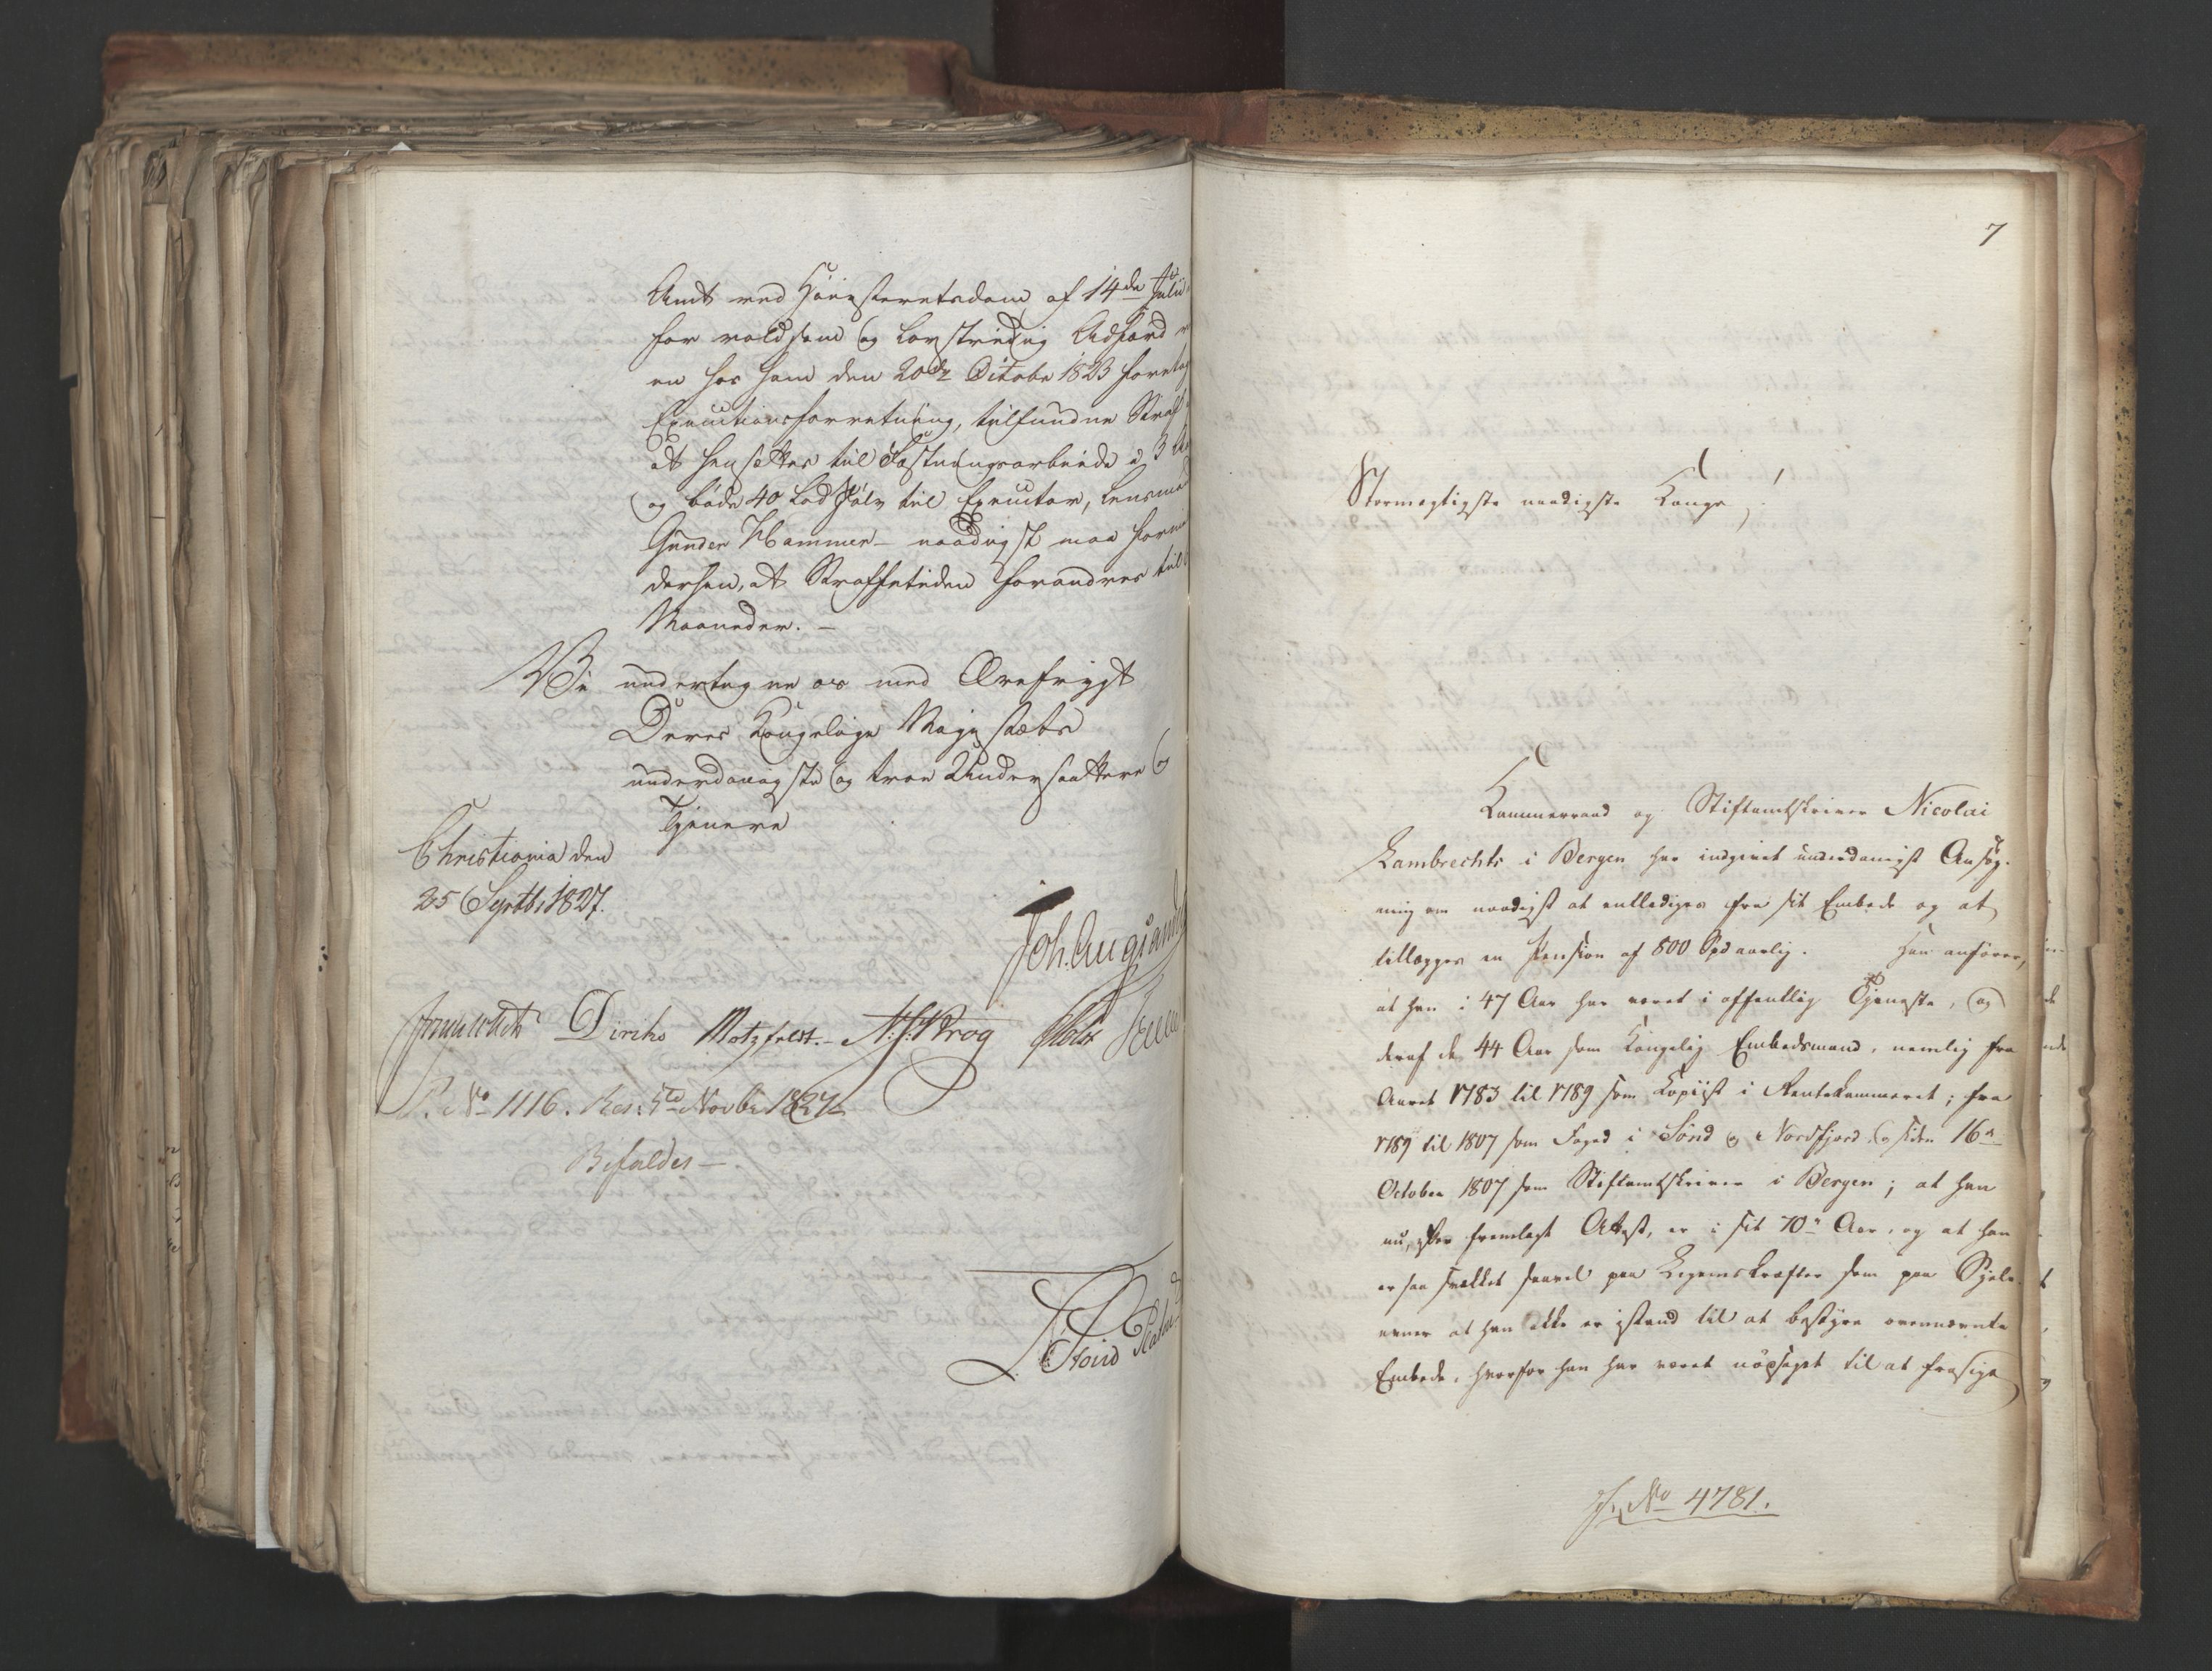 Amt ved Høiesteretsdom af 14de Julii
for voldsom og lovstridig Adfærd
en hos ham den 20de Octobr 1823 foretag
Executionsforretning, tilfundne Straf
at hensættes til Fæstningsarbeide i 3
og bøde 40 Lod Sølv til Executor, Lensmand
Gunder Hammer – naadigst maa formin
dersken, at Straffetiden forandres til
Maaneder. –
Vi undertegne os med Ærefrygt
Deres Kongelige Majestæts
underdanigste og troe Undersaattere og
Tjenere
Christiania den
25 Septb. 1827.
Joh. Aug. Sand
Diriks Motzfeldt. – N. J. Krog
R. No 1116. Res: 5te Novbr 1827
Bifaldes –
7
Stormægtigste naadigste Konge!
Kammerraad og Stiftamtskriver Nicolai
Lambrechts i Bergen har indgivet underdanigst Ansøg-
ning om naadigst at entlediges fra sit Embede og at
tillægges en Pension af 800 Spd aarlig. Han anfører,
at han i 47 Aar har været i offentlig Tjeneste, og
deraf de 44 Aar som Kongelig Embedsmand, nemlig fra
Aaret 1783 til 1789 som Kopiist i Rentekammeret; fra
1789 til 1807 som Foged i Sønd og Nordfjord, og siden 16de
October 1807 som Stiftamtskriver i Bergen; at han
nu, efter fremlagt Attest, er i sit 70de Aar, og at han
er saa svækket saavel paa Legemskræfter som paa Sjels-
evner at han ikke er istand til at bestyre ovennævnte
Embede, hvorfor han har været nødsaget til at frasige
J. No 4781.